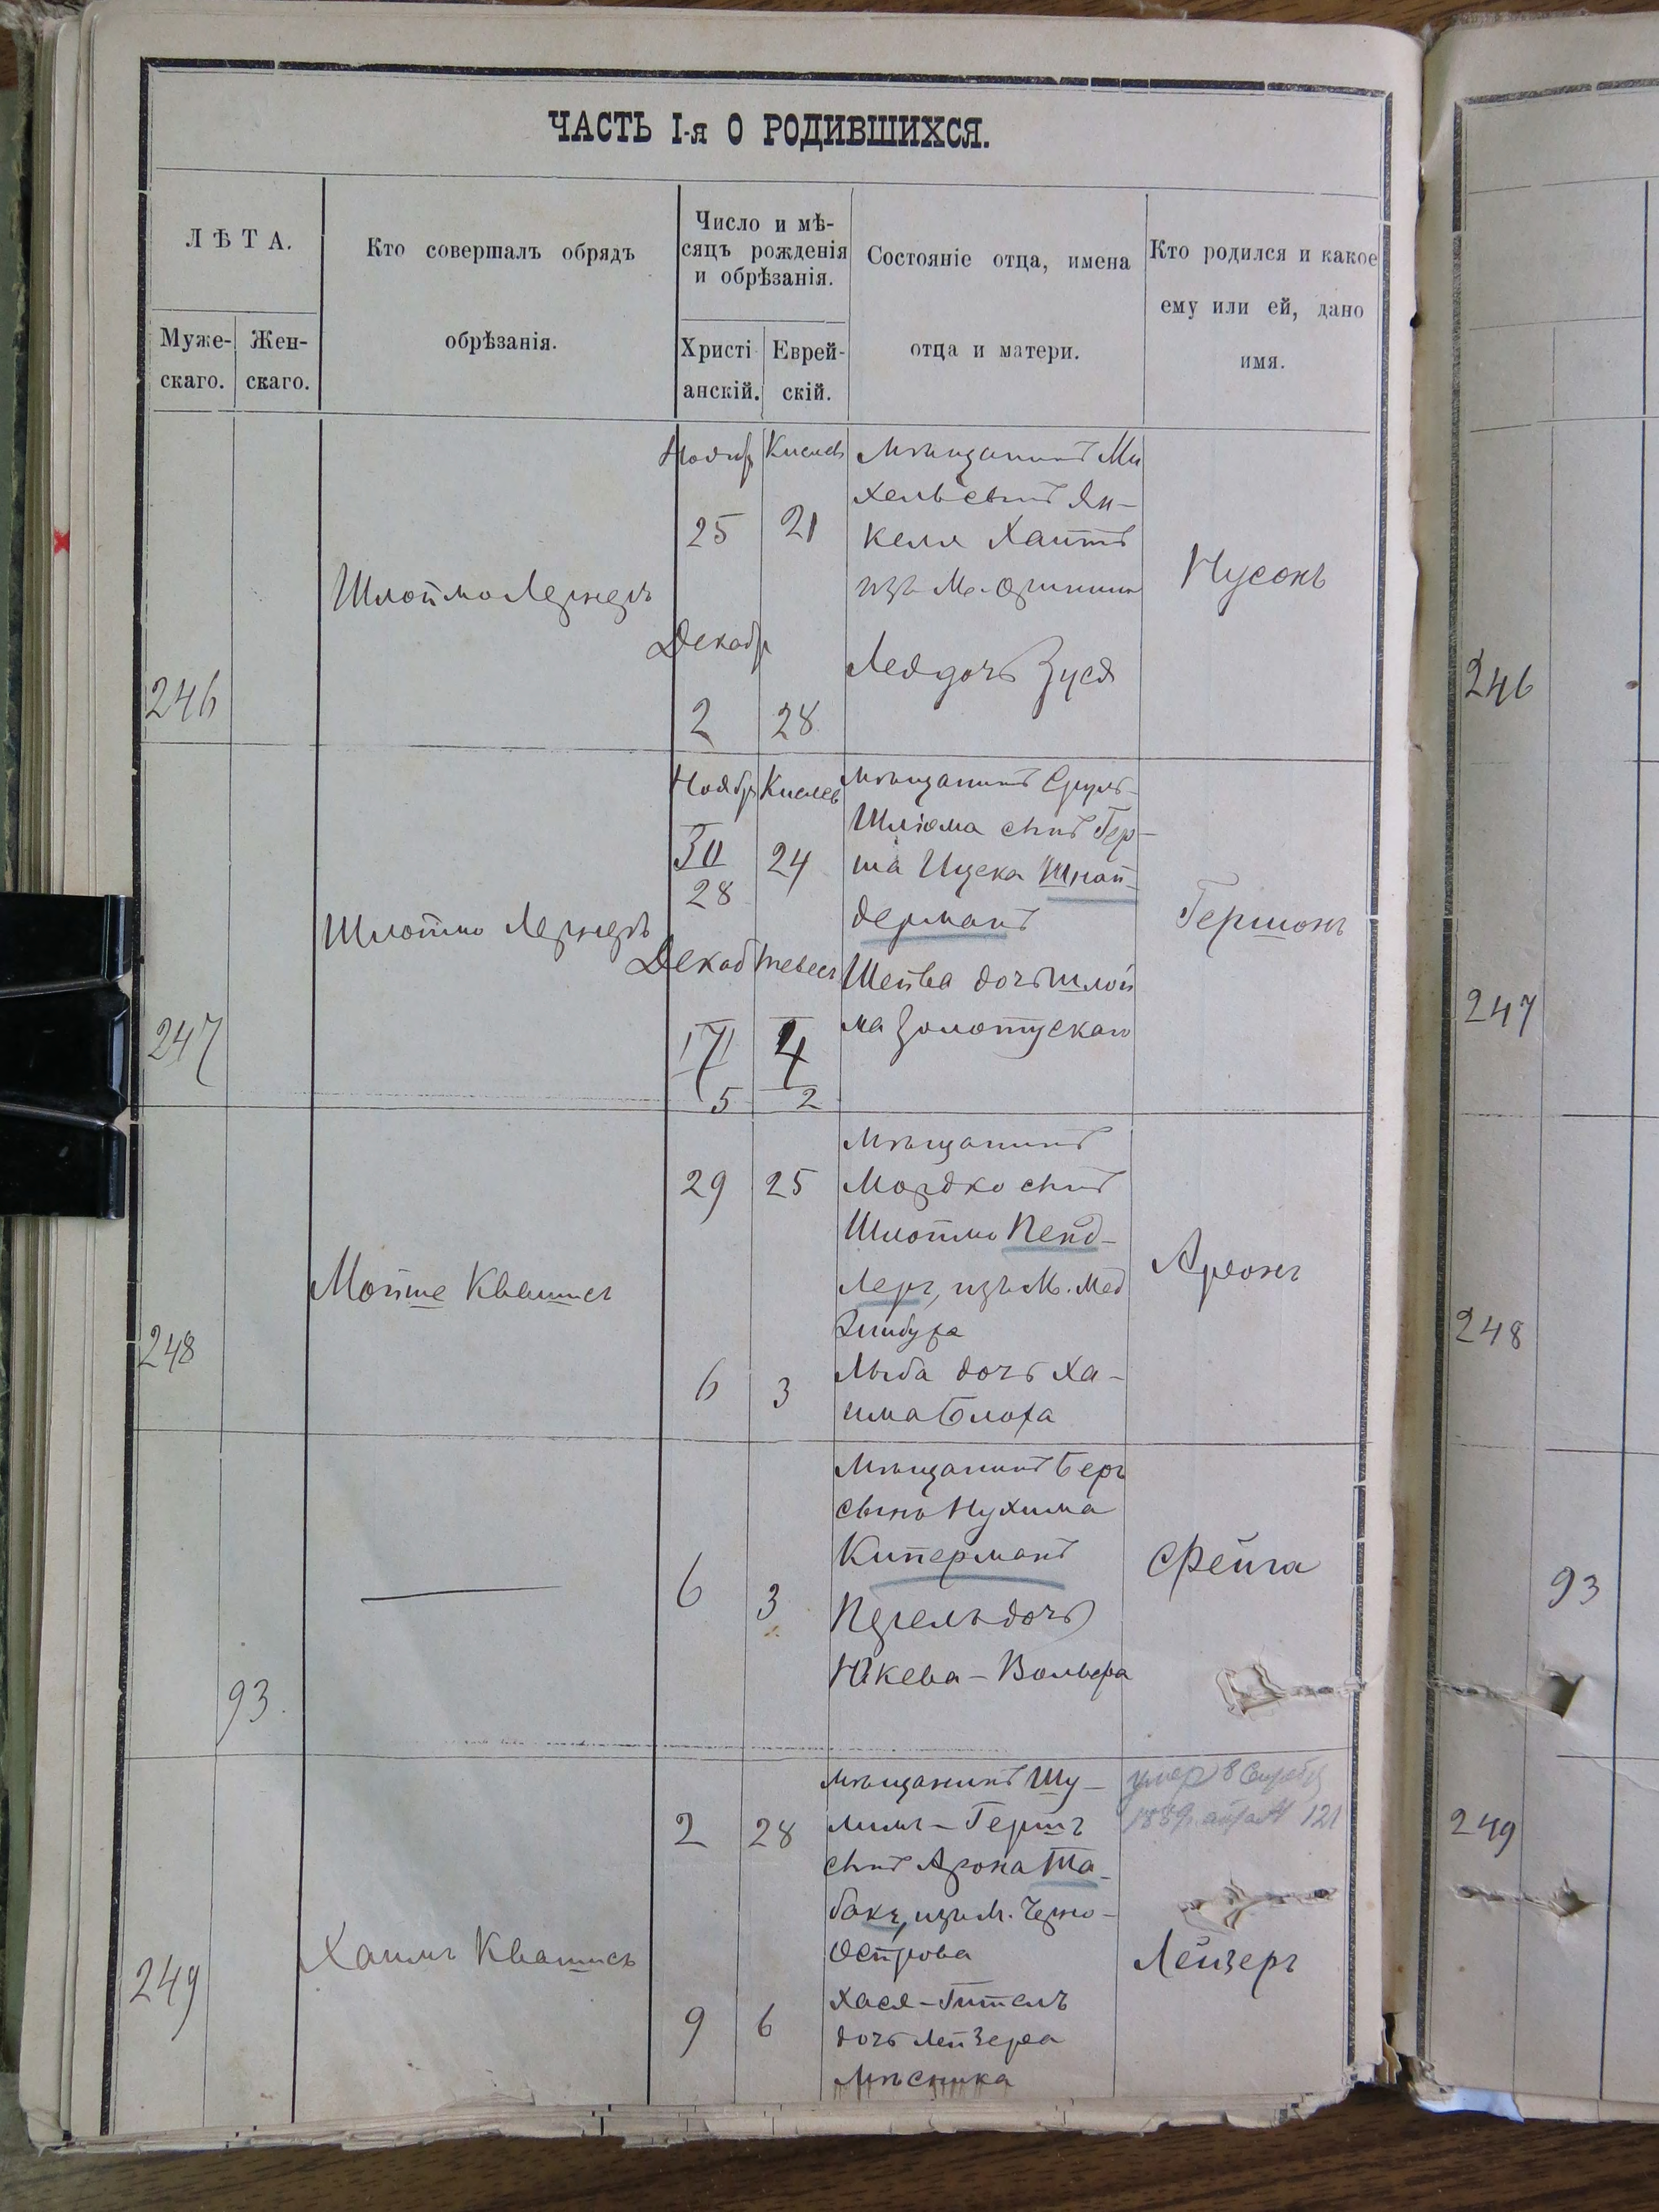 ЧАСТЬ I-я О РОДИВШИХСЯ.
ЛѢТА.
Муже-
скаго.
Жен-
скаго.
Кто совершалъ обрядъ
обрѣзанія.
Число и мѣ-
сяцъ рожденія
и обрѣзанія.
Христі
анскій.
Еврей-
скій.
Состояніе отца, имена
отца и матери.
Кто родился и какое
ему или ей, дано
имя.
246
Шлоймо Лернеръ
Ноябр
25
Декабр
2
Кислев
21
28
Мѣщанинъ Ми
хель сынъ Ян-
келя
изъ М.
Лея дочь Зуся
Нусонъ
246
247
Шлоймо Лернеръ
Ноябр
28
Декаб
5
Кислев
24
Тевес
4
2
Мѣщанинъ Сруль-
Шлюма сынъ Гер-
ша Ицека Шнай-
дерманъ
Шейва дочь Шлой
ма Золотускаго
Гершонъ
247
248
Мойше Квашис
29
6
25
3
Мѣщанинъ
Мордко сынъ
Шлоймо Пейд-
леръ, изъ М. Мед
жибужа
Лыба дочь Ха-
има Блоха
Аронъ
248
93.
6
3
Мѣщанинъ Беръ
сынъ Нухима
Киперманъ
Перель дочь
Юкева-Вольфа
Фейга
93
249
Хаимъ Квашисъ
2
9
28
6
Мѣщанинъ Шу-
лимъ-Гершъ
сынъ Арона Та-
бакъ, изъ М. Черно-
Острова
Хася-Гитель
дочь Лейзера
Мясника
умер 8
121
Лейзеръ
249